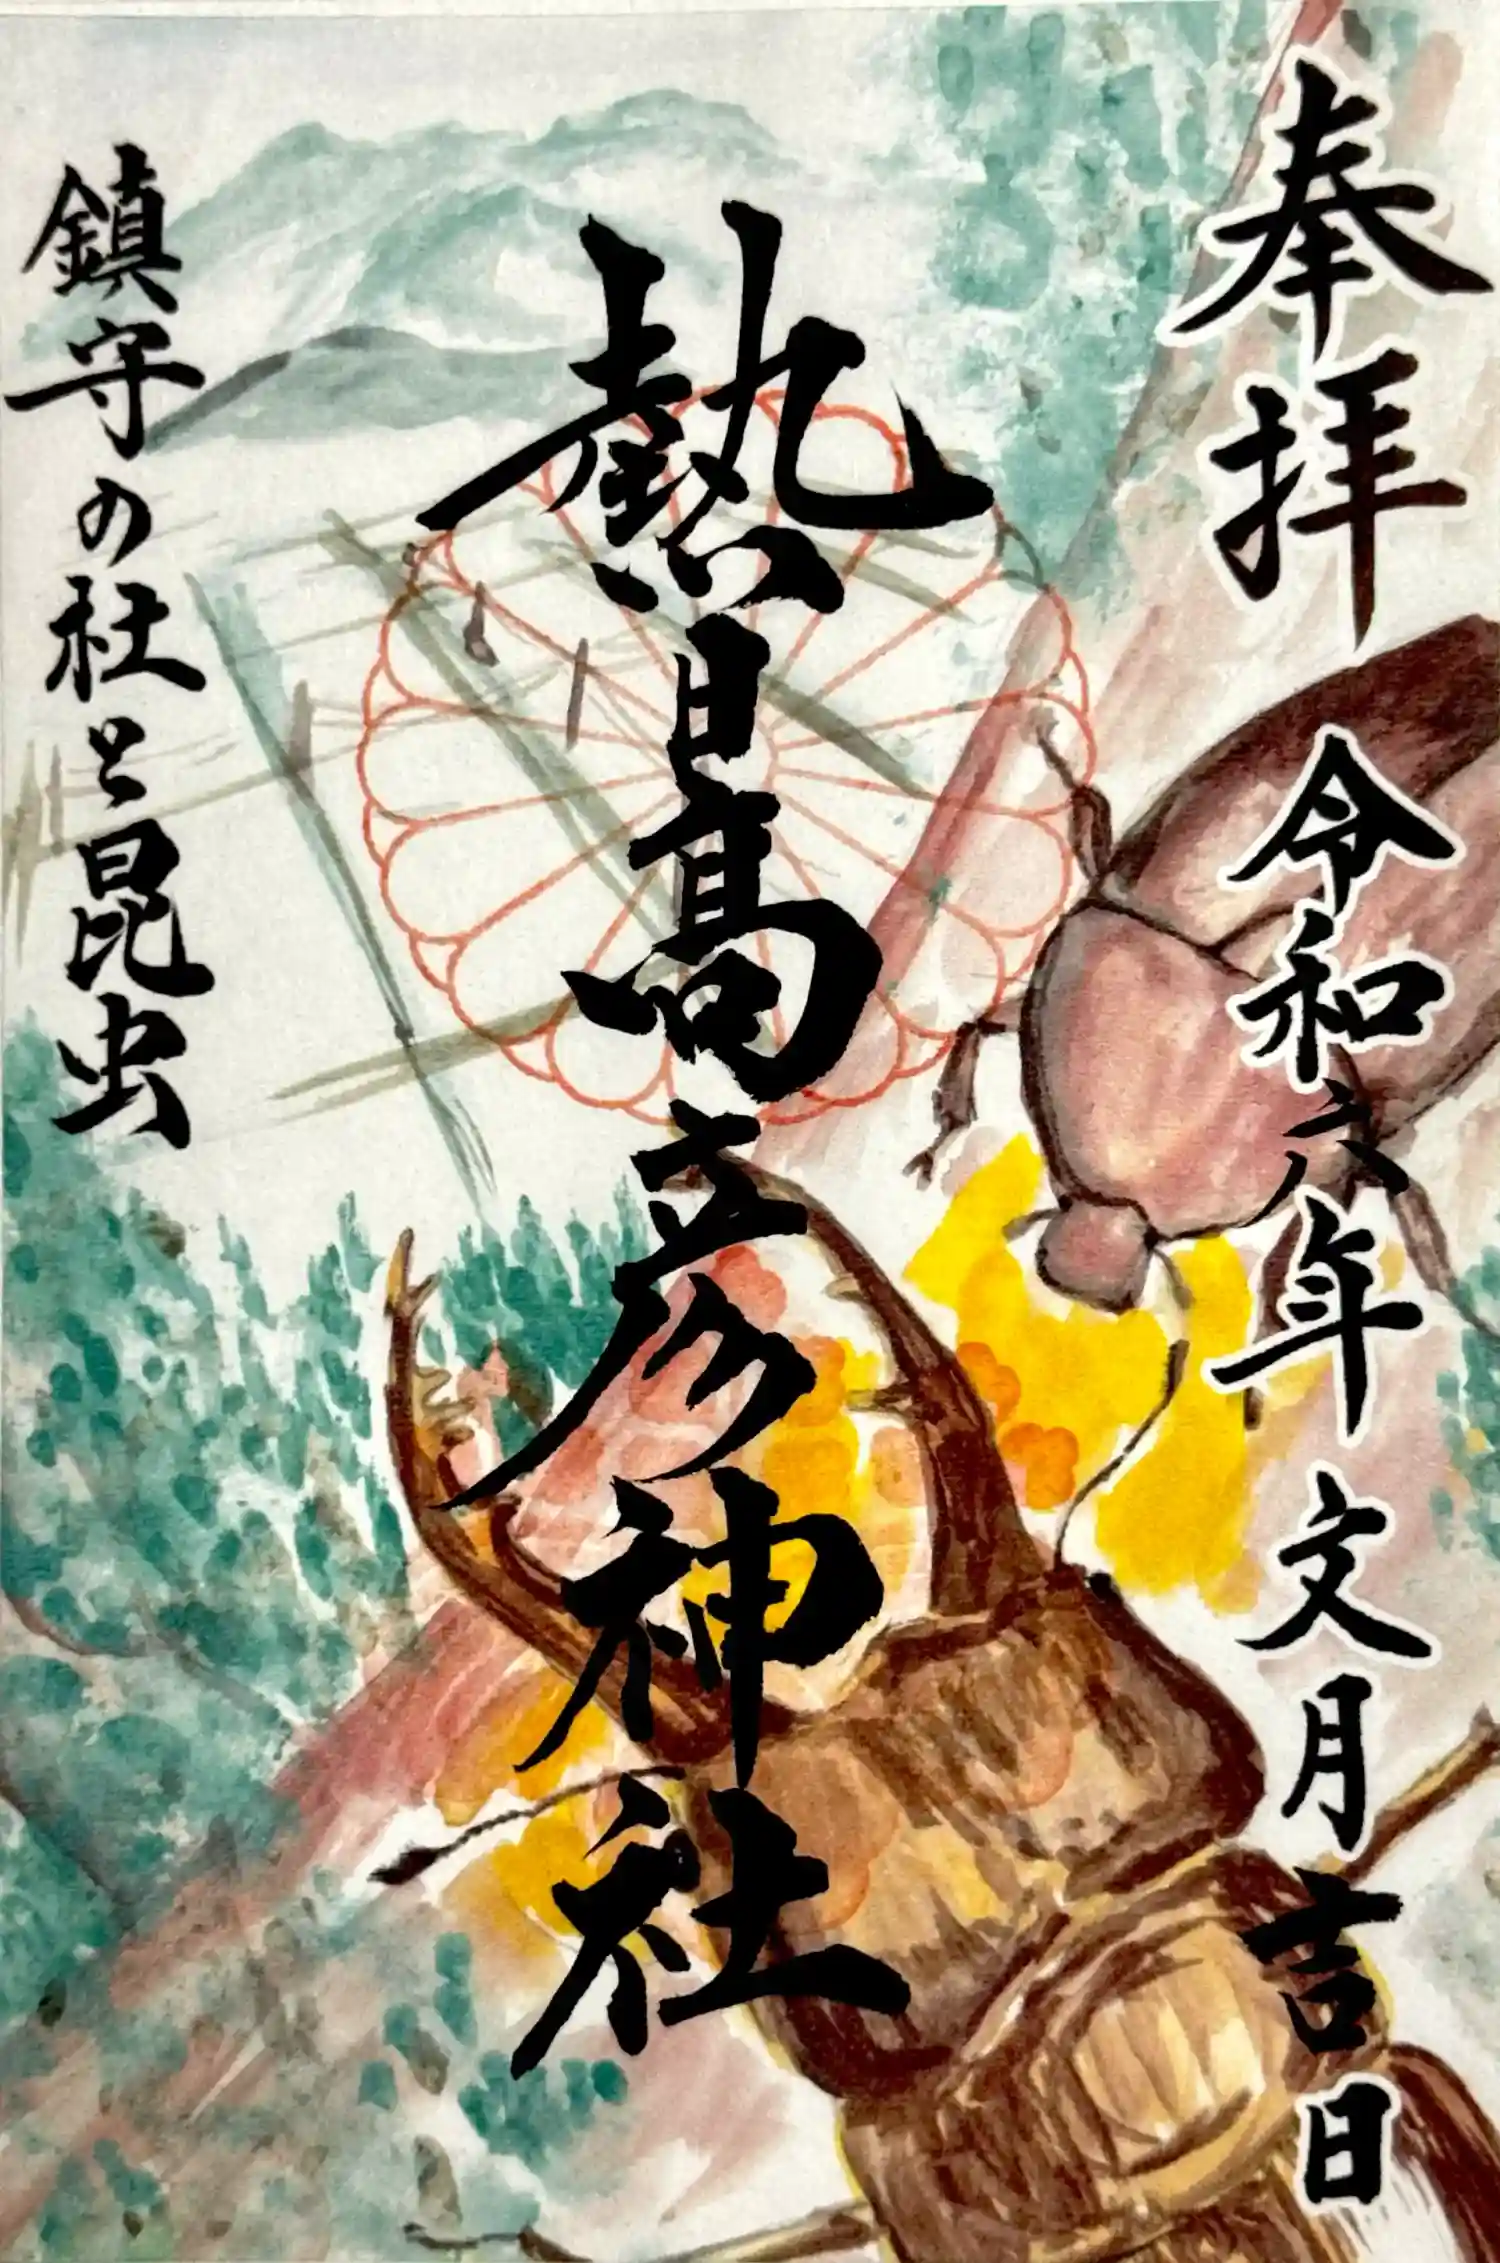 奉拝 令和六年文月吉日
熱日高彦神社
鎮守の社と昆虫